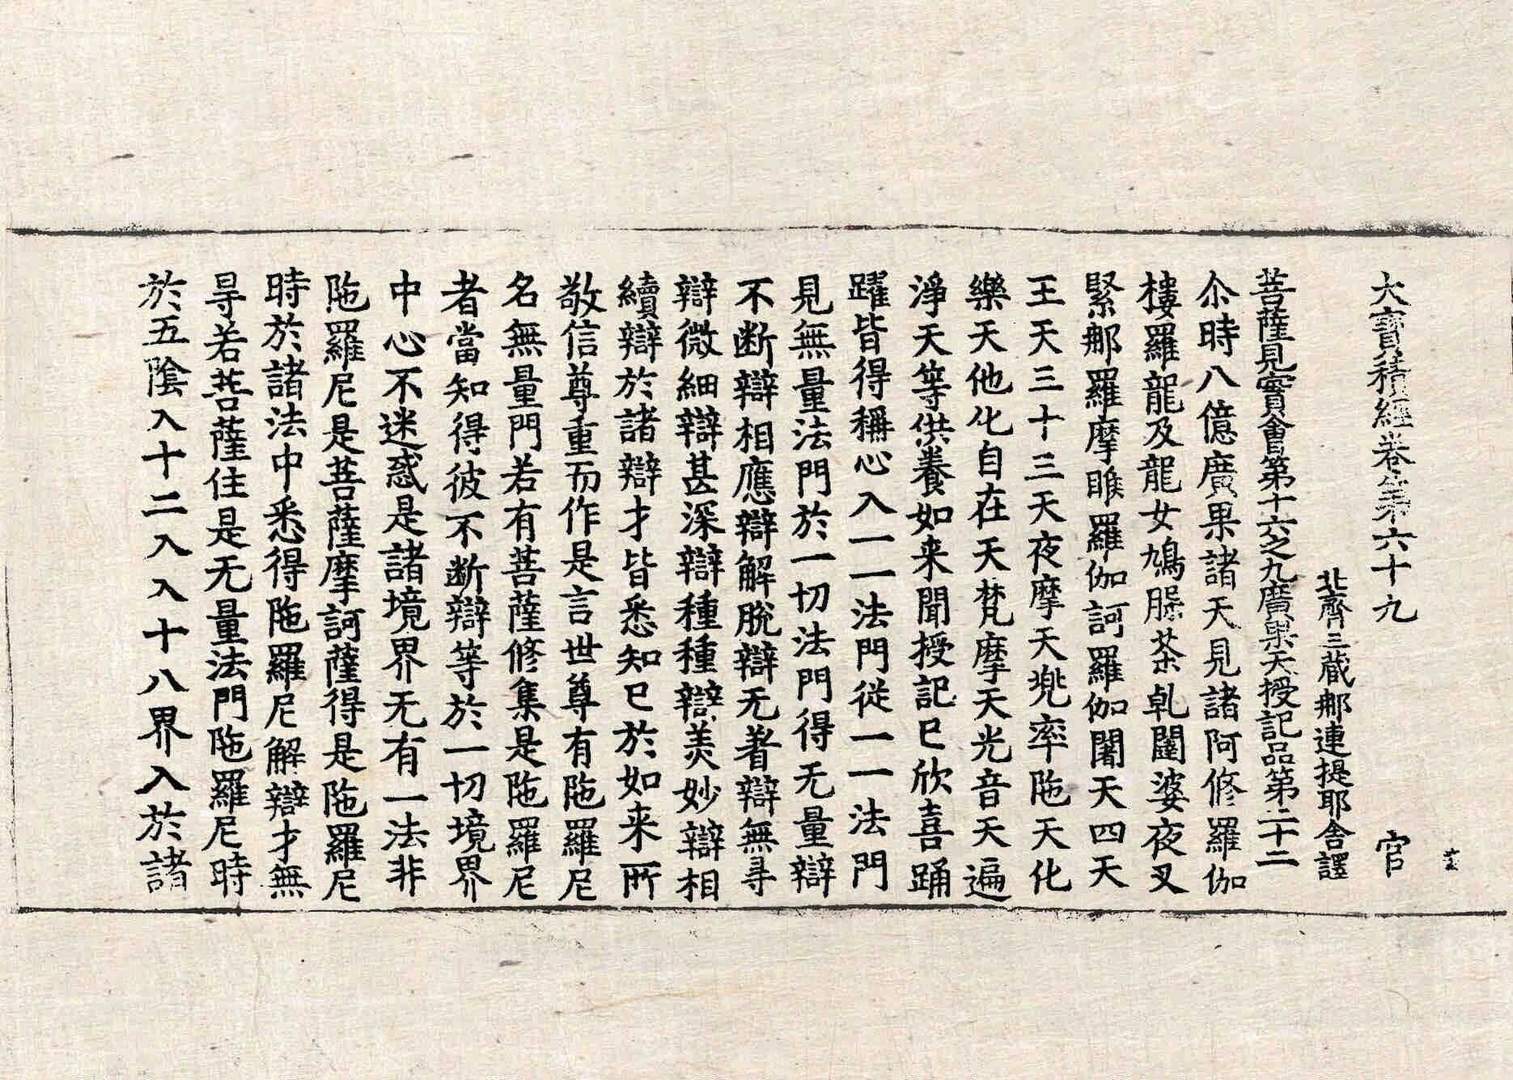 大寶積經卷第六十九 官
北齊三藏那連提耶舍譯
菩薩見實會第十六之九廣果天授記品第二十二
尒時八億廣果諸天見諸阿修羅伽
樓羅龍及龍女鳩槃茶乹闥婆夜叉
緊那羅摩睺羅伽訶羅伽闍天四天
王天三十三天夜摩天兠率陁天化
樂天他化自在天梵摩天光音天遍
淨天等供養如来聞授記已欣喜踊
躍皆得稱心入一一法門從一一法門
見無量法門於一切法門得无量辯
不断辯相應辯解脫辯无著辯無㝵
辯微細辯甚深辯種種辯美妙辯相
續辯於諸辯才皆悉知已於如来所
敬信尊重而作是言世尊有陁羅尼
名無量門若有菩薩修集是陁羅尼
者當知得彼不断辯等於一切境界
中心不迷惑是諸境界无有一法非
陁羅尼是菩薩摩訶薩得是陁羅尼
時於諸法中悉得陁羅尼解辯才無
㝵若菩薩住是无量法門陁羅尼時
於五陰入十二入入十八界入於諸